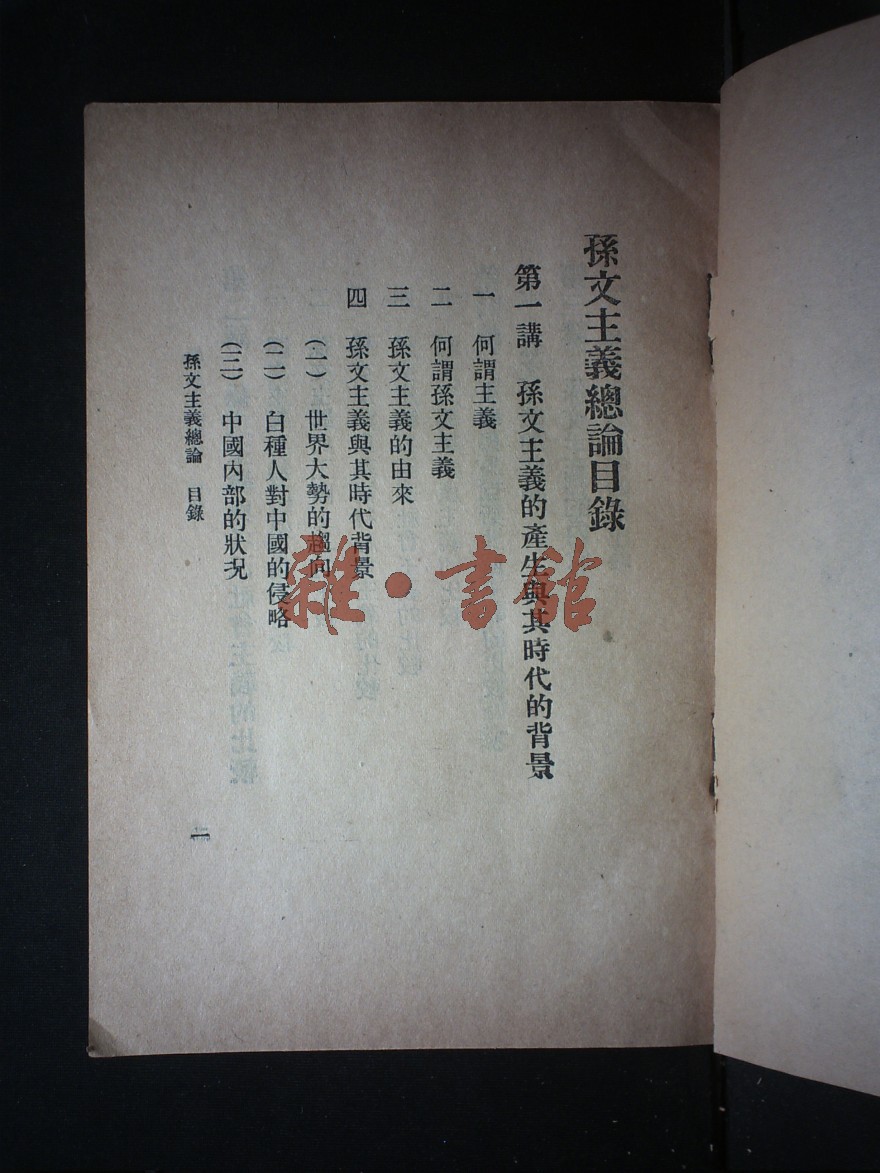 孫文主義總論目錄
第一講 孫文主義的產生與其時代的背景
一 何謂主義
二 何謂孫文主義
三 孫文主義的由來
四 孫文主義與其時代背景
(一)世界大勢的趨向
(二)白種人對中國的侵略
(三)中國內部的狀況
孫文主義總論 目錄
一
雜·書館